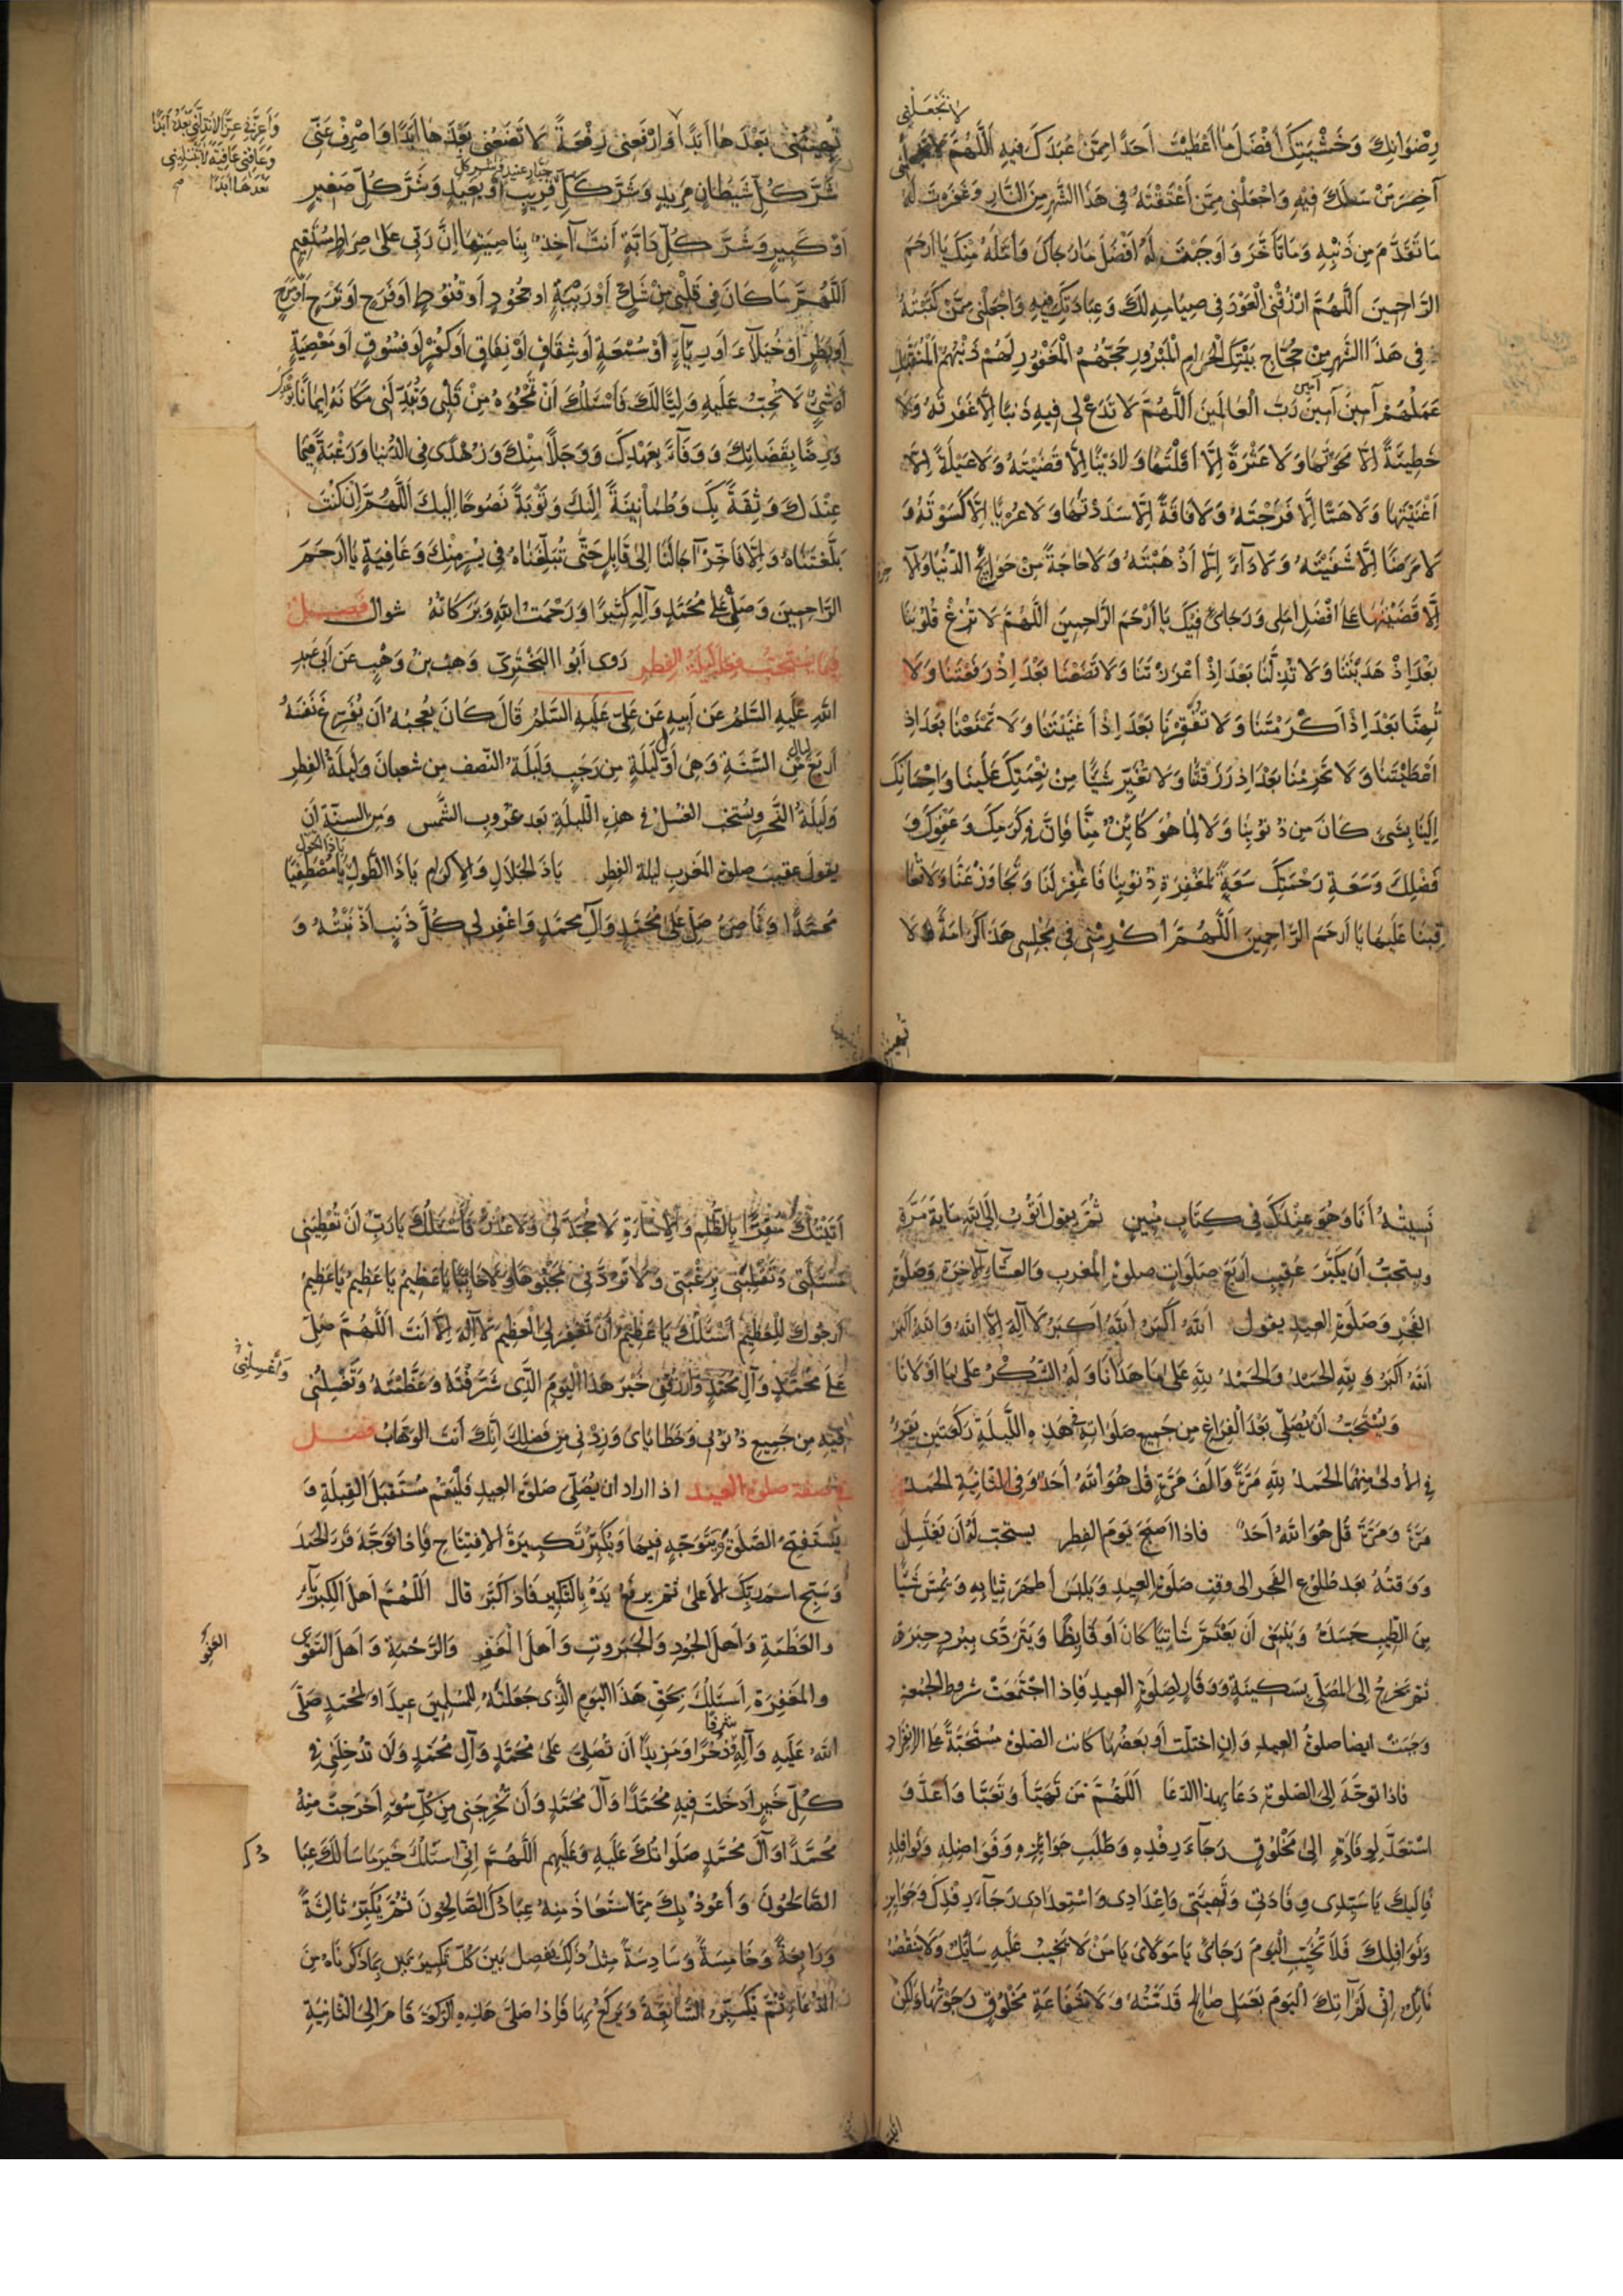 لا تجعلني
رِضْوَانِكَ وَخَشْيَتِكَ أَفْضَلَ مَا أَعْطَيْتَ أَحَدًا مِمَّنْ عَبَدَكَ فِيهِ اَللّٰهُمَّ
آخِرَ مَنْ سَئَلَكَ فِيْهِ وَاجْعَلْنِى مِمَّنْ أَعْتَقْتَهُ فِى هَذَا الشَّهْرِ مِنَ النَّارِ وَغَفَرْتَ لَهُ
مَا تَقَدَّمَ مِن ذَنْبِهِ وَمَا تَأَخَّرَ وَاَوجَبْتَ لَهُ اَفْضَلَ مَا رَجَاكَ وَاَمَّلَهُ مِنْكَ يَا اَرحَمَ
الرَّاحِمِينَ اَللّٰهُمَّ ارْزُقْنِى الْعَوْدَ فِى صِيَامِهِ لَكَ وَعِبَادَتِكَ فِيهِ وَاجْعَلْنِى مِمَّنْ كَتَبْتَهُ
فِى هَذَا الشَّهْرِ مِنْ حُجَّاجِ بَيْتِكَ الْحَرَامِ الْمَبْرُورِ حَجُّهُمُ الْمَغْفُورِ لَهُمْ ذَنْبُهُمُ الْمُتَقَبَّلِ
عَمَلُهُمْ آمِينَ آمِينَ آمين رَبَّ الْعَالَمِينَ اَللّٰهُمَّ لَا تَدَعْ لِى فِيهِ ذَنْبًا اِلَّا غَفَرْتَهُ وَلَا
خَطِيئَةً اِلَّا مَحَوْتَهَا وَلَا عَثْرَةً اِلَّا اَقَلْتَهَا وَلَا دَيْنًا اِلَّا قَضَيْتَهُ وَلَا عَيْلَةً اِلَّا
اَغْنَيْتَهَا وَلَا هَمًّا اِلَّا فَرَّجْتَهُ وَلَا فَاقَةً اِلَّا سَدَدْتَهَا وَلَا عُرْيًا اِلَّا كَسَوْتَهُ وَ
لَا مَرَضًا اِلَّا شَفَيْتَهُ وَلَا دَآءً اِلَّا اَذْهَبْتَهُ وَلَا حَاجَةً مِنْ حَوَائِجِ الدُّنْيَا وَالْآ
اِلَّا قَضَيْتَهَا عَلَى اَفْضَلِ اَمَلِى وَرَجَائِى فِيكَ يَا اَرْحَمَ الرَّاحِمِينَ اَللّٰهُمَّ لَا تُزِغْ قُلُوبَنَا
بَعْدَ اِذْ هَدَيْتَنَا وَلَا تُذِلَّنَا بَعْدَ اِذْ اَعْزَزْتَنَا وَلَا تَضَعْنَا بَعْدَ اِذْ رَفَعْتَنَا وَلَا
تُهِنَّا بَعْدَ اِذْ اَكْرَمْتَنَا وَلَا تُفْقِرْنَا بَعْدَ اِذْ اَغْنَيْتَنَا وَلَا تَمْنَعْنَا بَعْدَ اِذْ
اَعْطَيْتَنَا وَلَا تَحْرِمْنَا بَعْدَ اِذ رَزَقْتَنَا وَلَا تُغَيِّرْ شَيْئًا مِنْ نِعْمَتِكَ عَلَيْنَا وَاِحْسَانِكَ
اِلَيْنَا بِشَىْءٍ كَانَ مِن ذُنُوبِنَا وَلَا لِمَا هُوَ كَائِنٌ مِنَّا فَاِنَّ فِى كَرَمِكَ وَعَفْوِكَ وَ
فَضْلِكَ وَسَعَةِ رَحْمَتِكَ سَعَةً لِمَغْفِرَةِ ذُنُوبِنَا فَاغْفِرْلَنَا وَتَجَاوَزْ عَنَّا وَلَا تُعَا
قِبْنَا عَلَيْهَا يَا اَرحَمَ الرَّاحِمِينَ اَللّٰهُمَّ اَكْرِمْنِى فِى مَجْلِسِى هَذَا كَرَامَةً لَا
تُهِينُنِى بَعْدَهَا اَبَدًا وَارْفَعْنِى رِفْعَةً لَا تَضَعُنِى بَعْدَهَا اَبَدًا وَاصْرِفْ عَنِّى
وَاَعِزَّنِى عِزًّا لَا تُذِلُّنِى بَعْدَهُ اَبَدًا
وَعَافِنِى عَافِيَةً لَا تَبْتَلِينِى
بَعْدَهَا اَبَدًا
شَرَّ كُلِّ شَيْطَانٍ مَرِيدٍ وَشَرَّ كُلِّ قَرِيبٍ اَوْ بَعِيدٍ وَشَرَّ كُلِّ صَغِيرٍ
اَوْ كَبِيرٍ وَشَرَّ كُلِّ دَابَّةٍ اَنْتَ آخِذٌ بِنَاصِيَتِهَا اِنَّ رَبِّى عَلَى صِرَاطٍ مُسْتَقِيمٍ
اَللّٰهُمَّ مَا كَانَ فِى قَلْبِى مِنْ شَكٍّ اَوْ رَيْبَةٍ اَو جُحُودٍ اَو قُنُوطٍ اَوفَرَحٍ اَوْ مَرَحٍ
اَوبَطَرٍ اَوْ خُيَلَآءَ اَو رِيَآءٍ اَوْ سُمْعَةٍ اَوشِقَاقٍ اَوْ نِفَاقٍ اَو كُفْرٍ اَوفُسُوقٍ اَو مَعْصِيَةٍ
اَوشَىْءٍ لَا تُحِبُّ عَلَيهِ وَلِيًّا لَكَ فَاَسْئَلُكَ اَنْ تَمْحُوَهُ مِنْ قَلْبِى وَتُبَدِّلَنِى مَكَانَهُ اِيمَانًا
وَرِضًا بِقَضَائِكَ وَوَفَآءً بِعَهْدِكَ وَوَجَلًا مِنْكَ وَزُهْدًا فِى الدُّنْيَا وَرَغْبَةً فِيمَا
عِنْدَكَ وَثِقَةً بِكَ وَطُمَأنِينَةً اِلَيْكَ وَتَوْبَةً نَصُوحًا اِلَيكَ اَللّٰهُمَّ اِنْ كُنْتَ
بَلَّغْتَنَاهُ وَاِلَّا فَاَخِّرْ آجَالَنَا اِلَى قَابِلٍ حَتَّى تُبَلِّغَنَاهُ فِى يُسْرٍ مِنْكَ وَعَافِيَةٍ يَا اَرحَمَ
الرَّاحِمِينَ وَصَلَّى عَلَى مُحَمَّدٍ وَآلِهِ كَثِيرًا وَرَحْمَتُ اللهِ وَبَرَكَاتُهُ شوال فصل
فيما يستحب فعله ليلة الفطر رَوى اَبُو البَخْتَرِىّ وَهبُ بنُ وَهْبٍ عَن اَبِى عَبدِ
اللهِ عَلَيهِ السَّلمُ عَن اَبيهِ عَن عَلِىّ عَلَيهِ السَّلمُ قَالَ كَانَ يُعجِبُهُ اَن يُفَرِّغَ نَفسَهُ
اَربَعَ ليال مِن السَّنَةِ وَهِىَ اَوَّلُ لَيلَةٍ مِن رَجَبٍ وَلَيلَةُ النّصف مِن شعبانَ وَلَيلَةُ الفِطرِ
وَلَيلَةُ النَّحرِ ويُستَحبّ الغسلُ فى هذِهِ اللّيلَةِ بَعد غرُوبِ الشَّمسِ وَمِن السنّة اَن
يقول عقيب صلوة المَغرب ليلة الفطر يَاذَ الجَلَالِ وَالاِكرَامِ يَاذَا الطَّولِ ياذا الحول يَا مُصْطَفِيًا
مُحَمَّدًا وَنَاصِرَهُ صَلِّ عَلَى مُحَمَّدٍ وَآلِ مُحَمَّدٍ وَاغْفِر لِى كُلَّ ذَنبٍ اَذْنَبْتُهُ وَ
نَسِيتُهُ اَنَا وَهُوَ عِنْدَكَ فِى كِتَابٍ مُبِينٍ ثُمَّ يقول اَتُوبُ اِلَى اللهِ مِايَةَ مَرَّةٍ
ويستحبّ اَن يكَبّرَ عَقيب اَربَع صَلَواتٍ صلوة المَغرب وَالعشَآءِ الآخِرَة وَصَلوةِ
الفَجرِ وَصَلَوةِ العيد يقول اَللهُ اَكبَرُ اَللهُ اَكبَرُ لَا اِلهَ اِلَّا اللهُ وَاللهُ اَكبَرُ
اَللهُ اَكْبَرُ وَلِلّهِ الحَمدُ وَالحَمْدُ لِلّهِ عَلَى مَا هَدَانَا وَلَهُ الشُّكْرُ عَلَى مَا اَوْلَانَا
وَيُسْتَحَبُّ اَنْ يُصَلِّى بَعْدَ الفَرَاغِ مِن جَمِيعِ صَلَوَاتِهِ فى هَذِهِ اللَّيلَةِ رَكعَتَينِ يَقرَءُ
فِى الاُولَى مِنْهُمَا الحَمدُ لِلّهِ مَرَّةً وَاَلفَ مَرَّةٍ قُل هُوَ اللهُ اَحَدٌ وَفِى الثّانِيَةِ الحَمدَ
مَرَّةً وَمَرَّةً قُل هُوَ اللهُ اَحَدٌ فَاذا اَصبَحَ يَومَ الفِطرِ يستحبّ لَهُ اَن يَغتَسِلَ
وَوَقتُهُ بَعد طُلُوعِ الفَجر الى وَقتِ صَلوةِ العِيدِ وَيَلبَسَ اَطهَرَ ثِيَابِهِ وَيَمَسّ شَيئًا
مِنَ الطّيب جَسَدَهُ وَيَنبَغى اَن يَعْتَمَّ شَاتِيًا كَانَ اَو قَايِظًا وَيَتَرَدَّى بِبُردٍ حِبَرَةٍ
ثم يَخرجُ اِلَى المُصَلّى بِسَكِينَةٍ وَوَقَارٍ لِصَلَوةِ العِيدِ فَاِذا اجْتَمَعَتْ شُرُوط الجُمعَةِ
وَجَبَتْ ايضا صلوةُ العِيدِ وَاِن اختَلّت اَو بَعضُهَا كَانَت الصّلوةُ مُستَحَبَّةً عَلَى الاِنفِرَادِ
فاذا تَوجَّهَ اِلَى الصّلوة دَعَا بِهذا الدّعَا اَللّهُمَّ مَن تَهَيَّأَ وَتَعَبَّا وَاَعَدَّ وَ
اسْتَعَدَّ لِوِفَادَةٍ اِلَى مَخْلُوقٍ رَجَآءَ رِفْدِهِ وَطَلَبِ جَوَائِزِهِ وَفَوَاضِلِهِ وَنَوَافِلِهِ
فَاِلَيكَ يَا سَيِّدِى وِفَادَتِى وَتَهْيِئَتِى وَاِعْدَادِى وَاسْتِعدَادِى رَجَآءَ رِفدِكَ وَجَوَايِزِكَ
وَنَوَافِلِكَ فَلَا تُخَيِّبِ الْيَومَ رَجَائِى يَا مَولَاىَ يَا مَنْ لَا يَخِيبُ عَلَيهِ سَايِلٌ وَلَا يَنْقُصُهُ
نَائِلٌ اِنِّى لَمْ آتِكَ الْيَومَ بِعَمَلٍ صَالِحٍ قَدَّمْتُهُ وَلَا شَفَاعَةِ مَخْلُوقٍ رَجَوتُهَا وَلَكِنْ
اَتَيتُكَ مُقِرًّا بِالظُّلْمِ وَالاِسَاءَةِ لَا حُجَّةَ لِى وَلَا عُذْرَ فَاَسْئَلُكَ يَارَبِّ اَنْ تُعْطِيَنِى
مَسْئَلَتِى وَتَقْلِبَنِى بِرَغْبَتِى وَلَا تَرُدَّنِى مَجْبُوهًا وَلَا خَائِبًا يَا عَظِيمُ يَا عَظِيمُ يَا عَظِيمُ
اَرجُوكَ لِلْعَظِيمِ اَسْئَلُكَ يَا عَظِيمُ اَنْ تَغْفِرَ لِى الْعَظِيمَ لَا اِلهَ اِلَّا اَنتَ اَللّٰهُمَّ صَلِّ
عَلَى مُحَمَّدٍ وَآلِ مُحَمَّدٍ وَارْزُقْنِى خَيْرَ هَذَا الْيَومِ الَّذِى شَرَّفْتَهُ وَعَظَّمْتَهُ وَتَغْسِلُنِى
وَاغْسِلْنِى
فِيْهِ مِن جَمِيعِ ذُنُوبِى وَخَطَايَاىَ وَزِدْنِى مِن فَضلِكَ اِنَّكَ اَنتَ الوَهَّابُ فصل
فى صفة صلوة العيد اذا اراد ان يُصَلّى صَلَوةَ العيدِ فَليَقُم مُستَقبِلَ القِبلَةِ وَ
يَستَفتِحُ الصَّلَوةَ وَيَتَوَجّه فيهَا وَيُكَبِّرُ تَكبِيرَةَ الاِفتِتَاحِ فَاِذَا تَوَجَّهَ قَرَءَ الحَمدَ
وَسَبِّحِ اسمَ رَبِّكَ الاَعلَى ثم يرفَعُ يَدَهُ بِالتّكبِيرِ فَاِذَا كَبَّرَ قَالَ اَللّهُمَّ اَهلَ الكِبرِيَآءِ
والعَظَمَةِ وَاَهلَ الجُودِ وَالجَبَروتِ وَاَهلَ العَفوِ وَالرَّحْمَةِ وَاَهلَ التَقوَى
العَفوِ
والمَغفِرَةِ اَسئَلُكَ بِحَقِّ هَذَا اليَومِ الَّذِى جَعَلتَهُ لِلمُسلِمِينَ عِيدًا وَلِمُحَمَّدٍ صَلَّى
اللهُ عَلَيهِ وَآلِهِ ذُخْرًا شرفا وَمَزِيدًا اَن تُصَلِّىَ عَلَى مُحَمَّدٍ وَآلِ مُحَمَّدٍ وَاَن تُدخِلَنِى فِى
كُلِّ خَيرٍ اَدخَلتَ فِيهِ مُحَمَّدًا وَآلَ مُحَمَّدٍ وَاَن تُخرِجَنِى مِن كُلِّ سُوءٍ اَخرَجتَ مِنْهُ
مُحَمَّدًا وَآلَ مُحَمَّدٍ صَلَوَاتُكَ عَلَيهِ وَعَلَيهِم اَللّهُمَّ اِنِّى اَسئَلُكَ خَيرَ مَا سَاَلَكَ عِبَا
دُكَ
الصَّالِحُونَ وَاَعُوذُ بِكَ مِمَّا استَعَاذَ مِنهُ عِبَادُكَ الصَّالِحُونَ ثُمَّ يُكَبِّرُ ثَالِثَةً
وَرَابِعَةً وَخَامِسَةً وَسَادِسَةً مِثلَ ذَلِكَ يَفصِل بَينَ كُلّ تَكبِيرَتَينِ بِمَا ذَكَرنَاهُ مِنَ
الدّعَاءِ ثُمَّ يُكَبِّرُ السَّابِعَةَ وَيَركَعُ بِهَا فَاِذَا صَلَّى هَذِهِ الرَّكعَةَ قَامَ اِلَى الثَّانِيَةِ